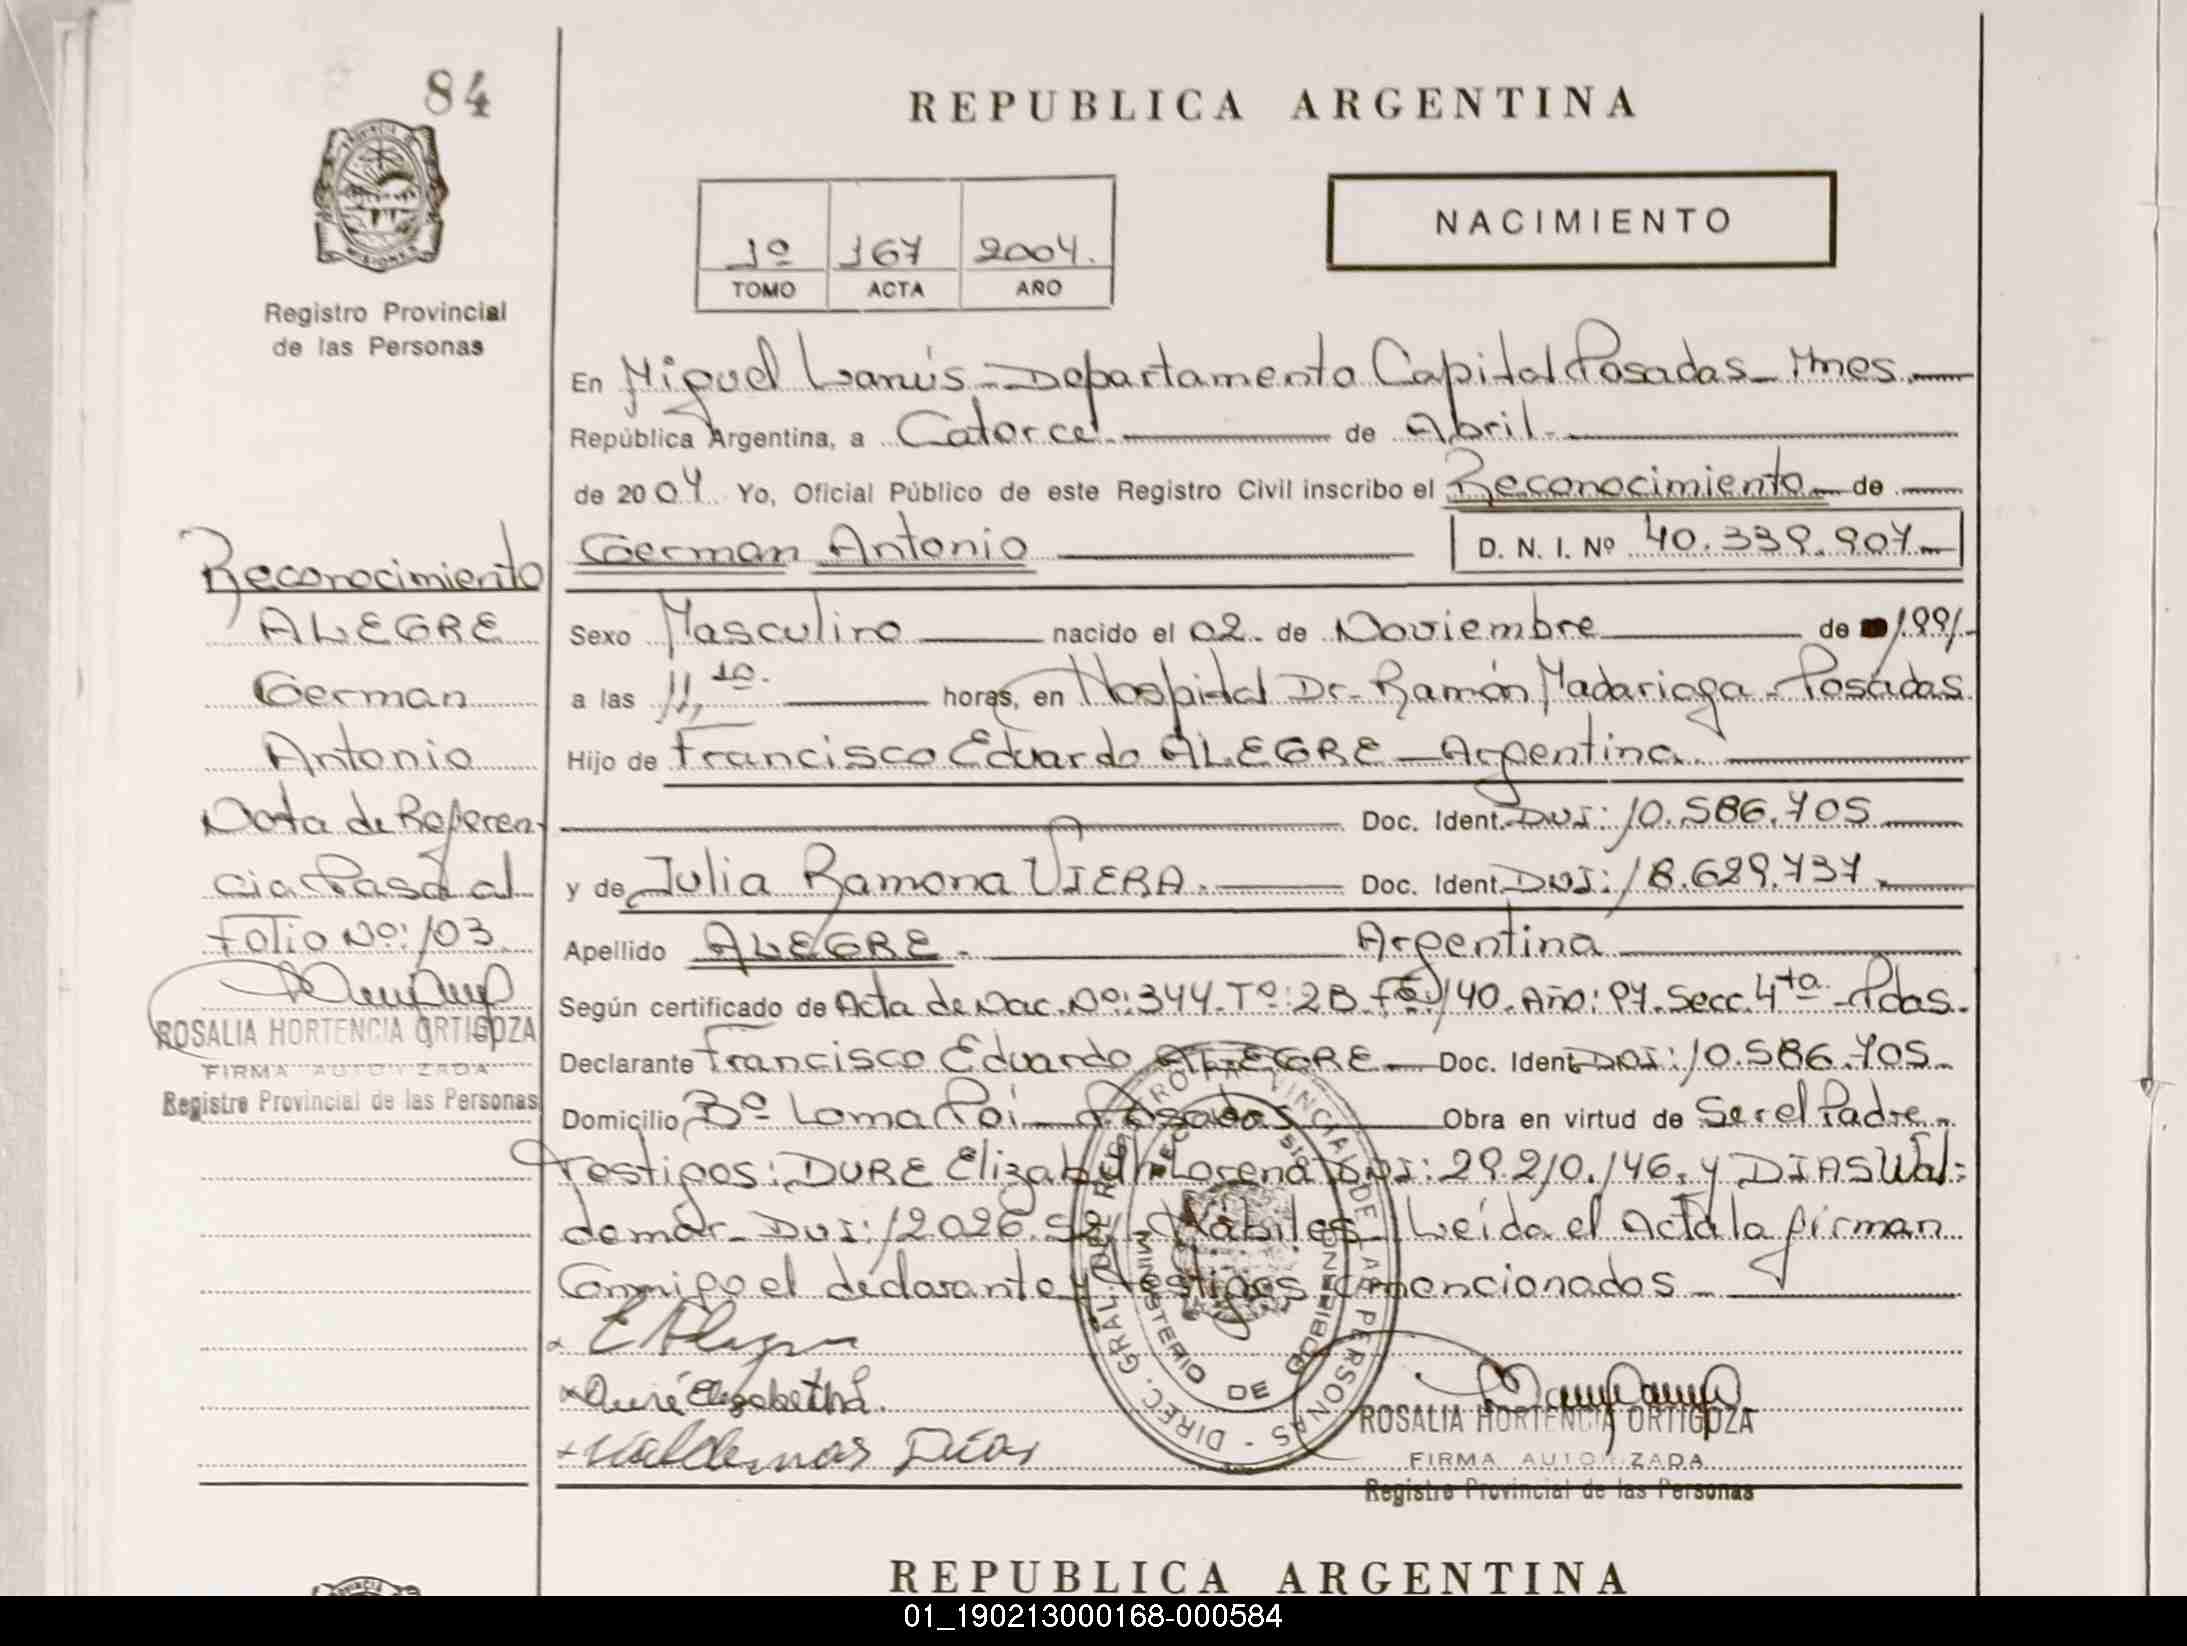 84
REPUBLICA ARGENTINA
NACIMIENTO
1º 167 2004.
TOMO ACTA AÑO
Registro Provincial
de las Personas
En Miguel Lanús - Departamento Capital Posadas - Mnes.
República Argentina, a Catorce de Abril.
de 2004 Yo, Oficial Público de este Registro Civil inscribo el Reconocimiento de
German Antonio D. N. I. Nº 40.339.907
Sexo Masculino nacido el 02 de Noviembre de 1991.
a las 11,10. horas, en Hospital Dr. Ramón Madariaga - Posadas
Hijo de Francisco Eduardo ALEGRE - Argentina.
Doc. Ident. DNI: 10.586.705
y de Julia Ramona VIERA. Doc. Ident. DNI: 18.629.737
Apellido ALEGRE. Argentina
Según certificado de Acta de Nac. Nº: 344. Tº: 2B. Fº: 140. Año: 97. Secc. 4ta. Pdas.
Declarante Francisco Eduardo ALEGRE Doc. Ident. DNI: 10.586.705.
Domicilio Bº Loma Poí - Posadas Obra en virtud de Ser el Padre.
Testigos: DURE Elizabeth Lorena DNI: 29.210.146. y DIAS Wal-
demar - DNI: 12026. Hábiles - Leída el Acta la firman
Conmigo el declarante y testigos mencionados
Reconocimiento
ALEGRE
German
Antonio
Nota de Referen-
cia Pasa al
Folio Nº: 103.
ROSALIA HORTENCIA ORTIGOZA
FIRMA AUTORIZADA
Registro Provincial de las Personas
E Alegre
Duré Elizabeth L.
Valdemar Dias
DIREC. GRAL. DEL REGISTRO PROVINCIAL DE LAS PERSONAS
MINISTERIO DE GOBIERNO
ROSALIA HORTENCIA ORTIGOZA
FIRMA AUTORIZADA
Registro Provincial de las Personas
REPUBLICA ARGENTINA
01_190213000168-000584